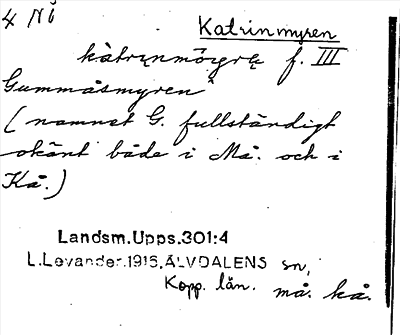 4 Nö
Katrinmyren
kàtrınmörgre f. III
Gummåsmyren
(namnet G. fullständigt
okänt både i Må. och i
Kå.)
Landsm.Upps.301:4
L.Levander.1916.ÄLVDALENS sn,
Kopp. län. må. kå.